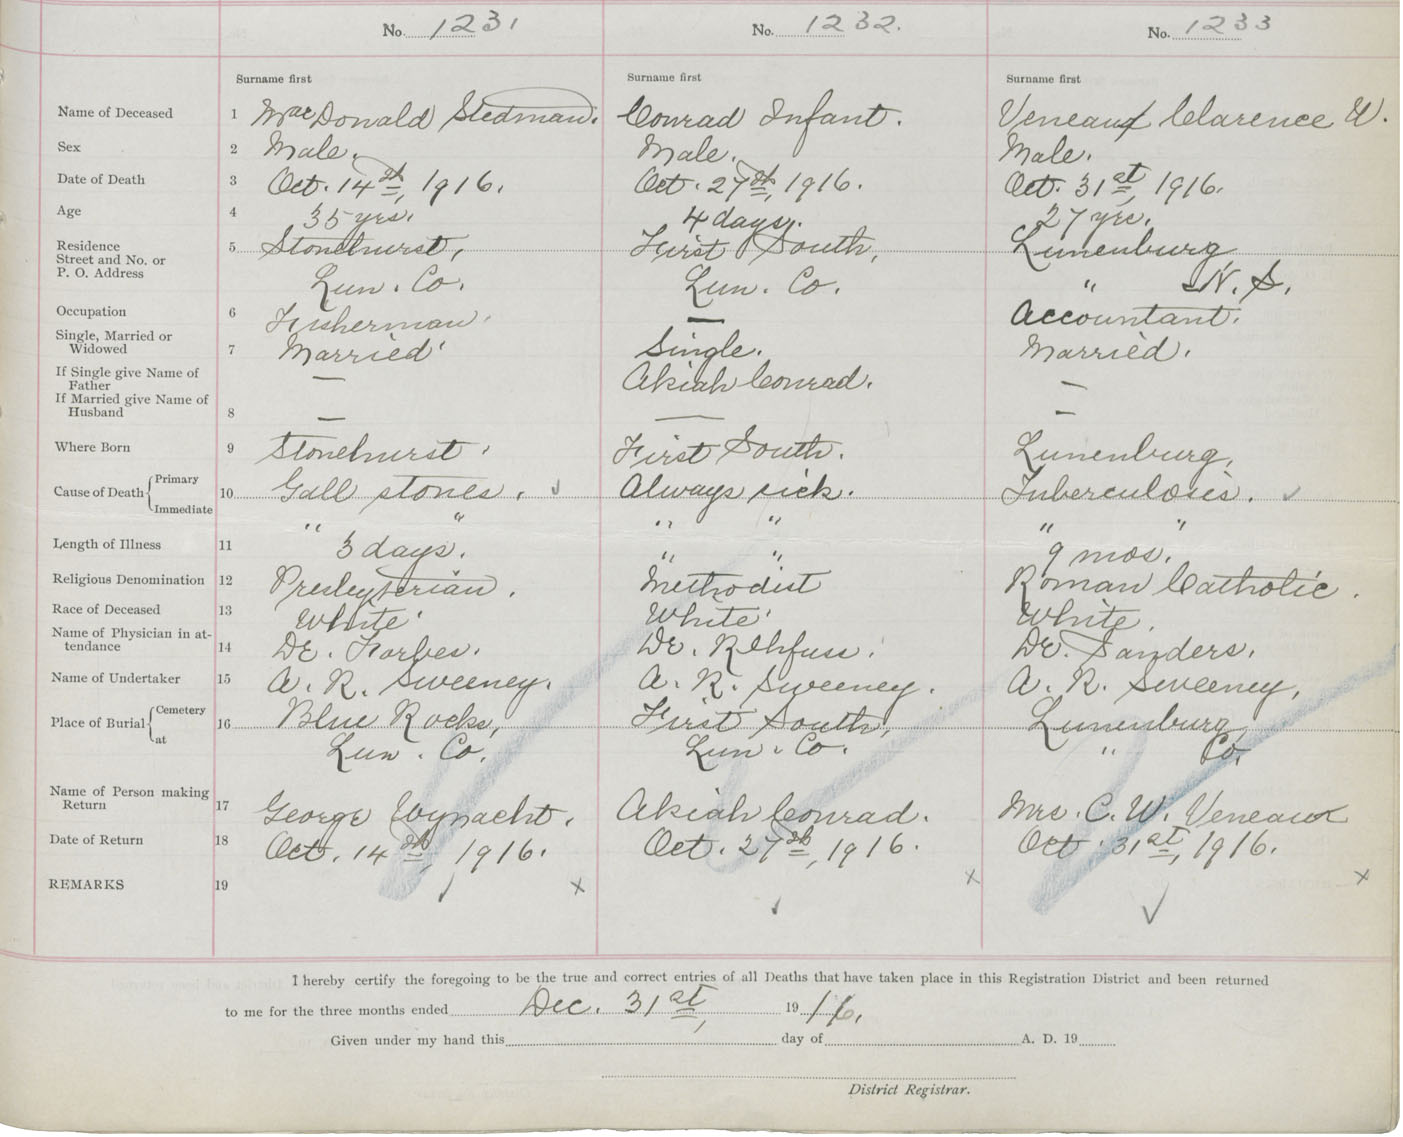 No. 1231 No. 1232. No. 1233
Surname first Surname first Surname first
Name of Deceased 1 MacDonald Stedman. Conrad Infant. Veneaux Clarence W.
Sex 2 Male. Male. Male.
Date of Death 3 Oct. 14th, 1916. Oct. 27th, 1916. Oct. 31st, 1916.
Age 4 35 yrs. 4 days. 27 yrs.
Residence 5 Stonehurst, First South, Lunenburg,
Street and No. or
P. O. Address Lun. Co. Lun. Co. " N. S.
Occupation 6 Fisherman. — Accountant.
Single, Married or
Widowed 7 Married. Single. Married.
If Single give Name of
Father — Akiah Conrad. —
If Married give Name of
Husband 8 — — —
Where Born 9 Stonehurst. First South. Lunenburg,
Cause of Death { Primary
10 Gall stones. Always sick. Tuberculosis.
Immediate " " " " " "
Length of Illness 11 3 days. " " 9 mos.
Religious Denomination 12 Presbyterian. Methodist Roman Catholic.
Race of Deceased 13 White. White. White.
Name of Physician in at-
tendance 14 Dr. Forbes. Dr. Rehfuss. Dr. Sanders.
Name of Undertaker 15 A. R. Sweeney. A. R. Sweeney. A. R. Sweeney,
Place of Burial { Cemetery
16 Blue Rocks, First South, Lunenburg
at Lun. Co. Lun. Co. " Co.
Name of Person making
Return 17 George Wynacht. Akiah Conrad. Mrs. C. W. Veneaux
Date of Return 18 Oct. 14th, 1916. Oct. 27th, 1916. Oct. 31st, 1916.
REMARKS 19 x x x
I hereby certify the foregoing to be the true and correct entries of all Deaths that have taken place in this Registration District and been returned
to me for the three months ended Dec. 31st, 1916.
Given under my hand this day of A. D. 19
District Registrar.